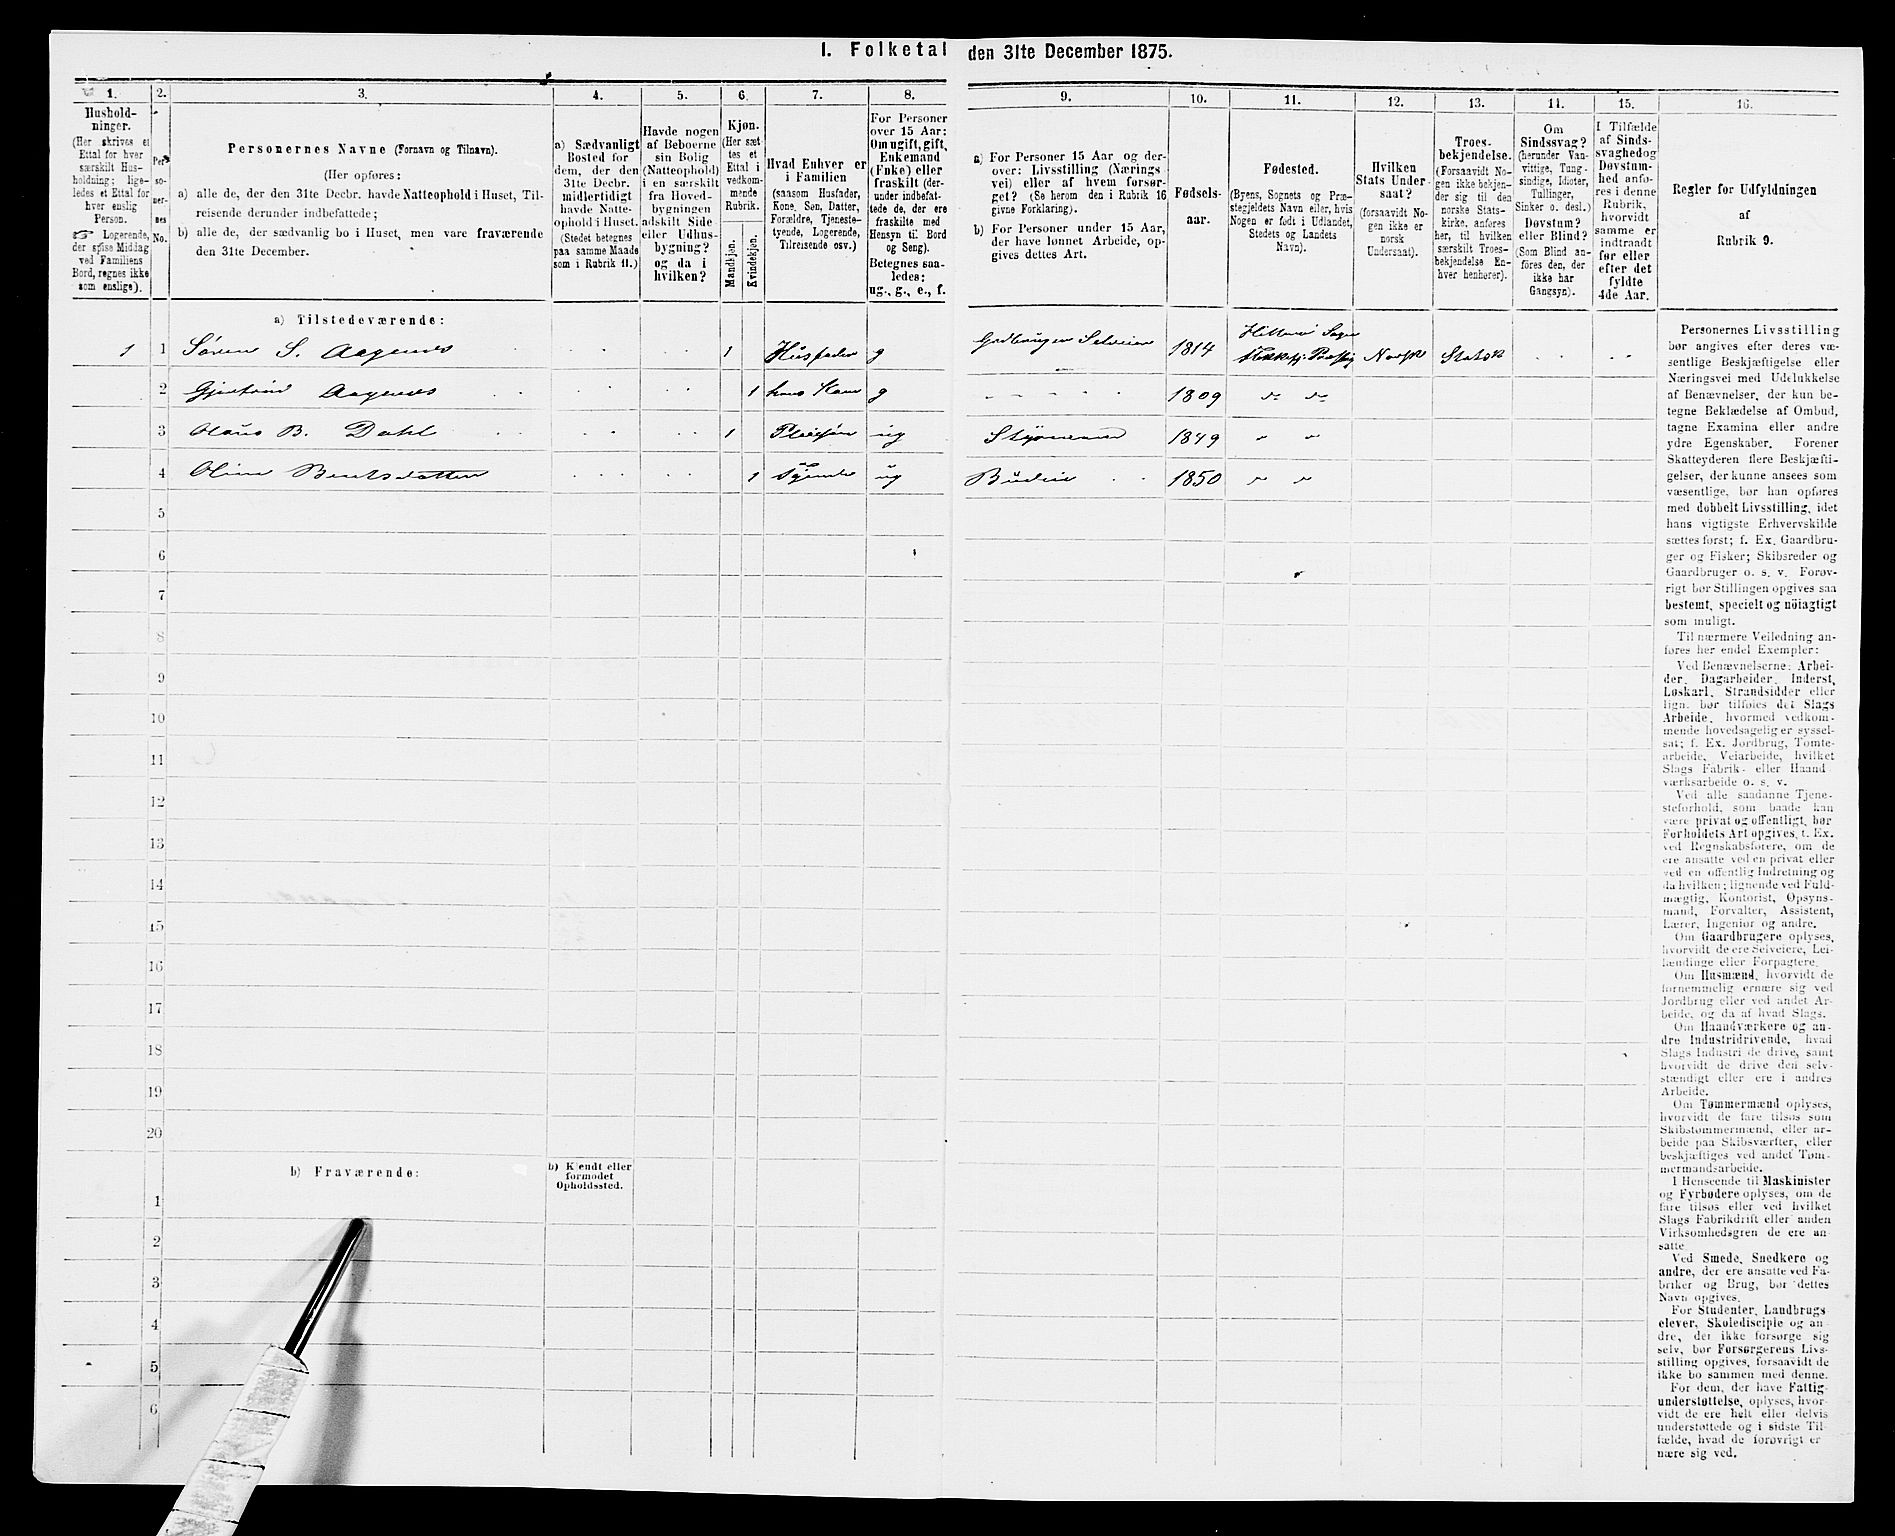 I. Folketal den 31te December 1875.
1.
Hushold-
ninger.
(Her skrives et
Ettal for hver
særskilt Hus-
holdning; lige-
ledes et Ettal for
hver enslig
Person.
☞ Logerende,
der spise Middag
ved Familiens
Bord, regnes ikke
som enslige).
2.
Per-
so-
ner-
nes
No.
3.
Personernes Navne (Fornavn og Tilnavn).
(Her opføres:
a) alle de, der den 31te Decbr. havde Natteophold i Huset, Til-
reisende derunder indbefattede;
b) alle de, der sædvanlig bo i Huset, men vare fraværende
den 31te December.
4.
a) Sædvanligt
Bosted for
dem, der den
31te Decbr.
midlertidigt
havde Natte-
ophold i Huset.
(Stedet betegnes
paa samme Maade
som i Rubrik 11.)
5.
Havde nogen
af Beboerne
sin Bolig
(Natteophold)
i en særskilt
fra Hoved-
bygningen
adskilt Side
eller Udhus-
bygning?
og da i
hvilken?
6.
Kjøn.
(Her sæt
tes et
Ettal i
vedkom-
mende
Rubrik.
Mandkjøn.
Kvindekjøn.
7.
Hvad Enhver er
i Familien
(saasom Husfader,
Kone, Søn, Datter,
Forældre, Tjeneste-
tyende, Logerende,
Tilreisende osv.)
8.
For Personer
over 15 Aar:
Om ugift, gift,
Enkemand
(Enke) eller
fraskilt (der-
under indbefat-
tede de, der ere
fraskilte med
Hensyn til Bord
og Seng).
Betegnes saa-
ledes:
ug., g., e., f.
9.
a) For Personer 15 Aar og der-
over: Livsstilling (Nærings
vei) eller af hvem forsør-
get? (Se herom den i Rubrik 16
givne Forklaring).
b) For Personer under 15 Aar,
der have lønnet Arbeide, op-
gives dettes Art.
10.
Fødsels-
aar.
11.
Fødested.
(Byens, Sognets og Præ-
stegjeldets Navn eller, hvis
Nogen er født i Udlandet,
Stedets og Landets
Navn).
12.
Hvilken
Stats Under-
saat?
(forsaavidt No-
gen ikke er
norsk
Undersaat).
13.
Troes-
bekjendelse.
(Forsaavidt No-
gen ikke bekjen-
der sig til den
norske Stats-
kirke, anføres
her, til hvilken
særskilt Troes-
bekjendelse En-
hver henhører).
14.
Om
Sindssvag?
(herunder Van-
vittige, Tung-
sindige, Idioter,
Tullinger,
Sinker o. desl.)
Døvstum?
eller Blind?
(Som Blind an-
føres den, der
ikke har
Gangsyn).
15.
I Tilfælde
af Sinds-
svaghed og
Døvstum-
hed anfø-
res i denne
Rubrik,
hvorvidt
samme er
indtraadt
før eller
efter det
fyldte
4de Aar.
16.
Regler for Udfyldningen
af
Rubrik 9.
a) Tilstedeværende:
1 1 Søren S. Aagenes 1 Husfader g Grdbruger Selveier 1814 Hitterø Sogn Præstg Norsk Statsk
2 Gjertrud Aagenes 1 hans Kone g 1809
3 Olaus B. Dahl 1 Pleiesøn ug Styrmand 1849
4 Oline Berntsdatter 1 Tyende ug Budeie 1850
5
6
7
8
9
10
11
12
13
14
15
16
17
18
19
20
b) Fraværende:
b) Kjendt eller
formodet
Opholdssted.
1
2
3
4
5
6
Personernes Livsstilling
bør angives efter deres væ-
sentlige Beskjæftigelse eller
Næringsvei med Udelukkelse
af Benævnelser, der kun be-
tegne Beklædelse af Ombud,
tagne Examina eller andre
ydre Egenskaber. Forener
Skatteyderen flere Beskjæfti-
gelser, der kunne ansees som
væsentlige, bør han opføres
med dobbelt Livsstilling, idet
hans vigtigste Erhvervskilde
sættes først; f. Ex. Gaardbru-
ger og Fisker; Skibsreder og
Gaardbruger o. s. v. Forøv-
rigt bør Stillingen opgives saa
bestemt, specielt og nöiagtigt
som muligt.
Til nærmere Veiledning an-
føres her endel Exempler:
Ved Benævnelserne: Arbei-
der, Dagarbeider, Inderst,
Løskarl, Strandsidder eller
lign. bør tilføies det Slags
Arbeide, hvormed vedkom-
mende hovedsagelig er syssel-
sat; f. Ex. Jordbrug, Tomte-
arbeide, Veiarbeide, hvilket
Slags Fabrik- eller Haand
værksarbeide o. s. v.
Ved alle saadanne Tjene-
steforhold, som baade kan
være privat og offentligt, bør
Forholdets Art opgives, f. Ex.
ved Regnskabsførere, om de
ere ansatte ved en privat eller
ved en offentlig Indretning og
da hvilken; lignende ved Fuld-
mægtig, Kontorist, Opsyns-
mand, Forvalter, Assistent,
Lærer, Ingeniør og andre.
Om Gaardbrugere oplyses,
hvorvidt de ere Selveiere, Lei-
lændinge eller Forpagtere.
Om Husmænd, hvorvidt de
fornemmelig ernære sig ved
Jordbrug eller ved andet Ar-
beide, og da af hvad Slags.
Om Haandværkere og an-
dre Industridrivende, hvad
Slags Industri de drive, samt
hvorvidt de drive den selv-
stændigt eller ere i andres
Arbeide.
Om Tømmermænd oplyses,
hvorvidt de fare tilsøs som
Skibstømmermænd, eller ar-
beide paa Skibsværfter, eller
beskjæftiges ved andet Tøm-
mermandsarbeide.
I Henseende til Maskinister
og Fyrbødere oplyses, om de
fare tilsøs eller ved hvilket
Slags Fabrikdrift eller anden
Virksomhedsgren de ere an-
satte.
Ved Smede, Snedkere og
andre, der ere ansatte ved Fa-
briker og Brug, bør dettes
Navn opgives.
For Studenter, Landbrugs
elever, Skoledisciple og an-
dre, der ikke forsørge sig
selv, bør Forsørgerens Livs-
stilling opgives, forsaavidt de
ikke bo sammen med denne.
For dem, der have Fattig-
understøttelse, oplyses, hvor-
vidt de ere helt eller delvis
understøttede og i sidste Til-
fælde, hvad de forøvrigt er
nære sig ved.